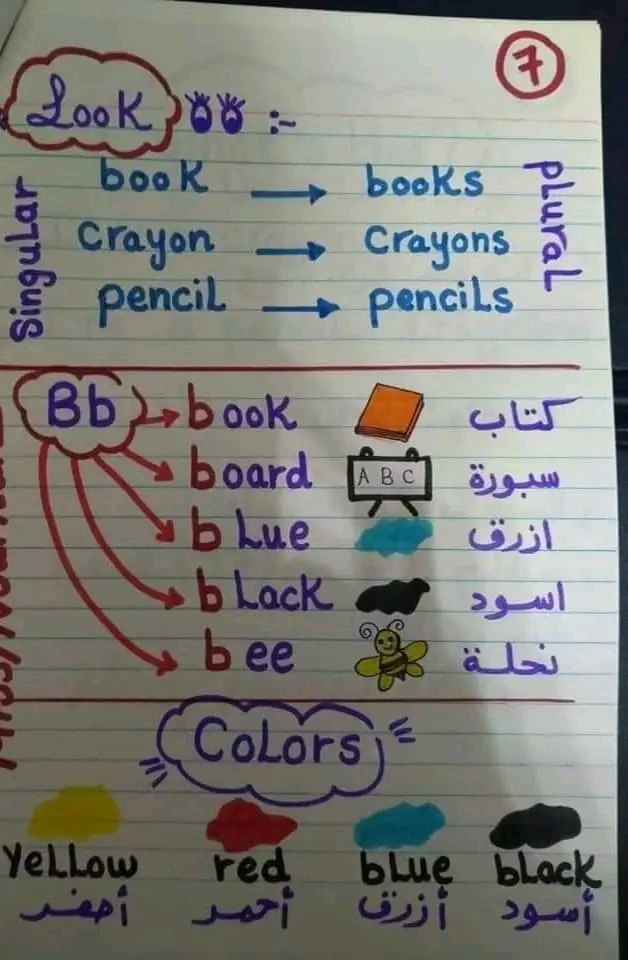 7
Look :-
Singular
plural
book → books
Crayon → Crayons
pencil → pencils
Bb
book كتاب
board A B C سبورة
blue ازرق
black اسود
bee نحلة
Colors
yellow red blue black
أصفر أحمر أزرق أسود